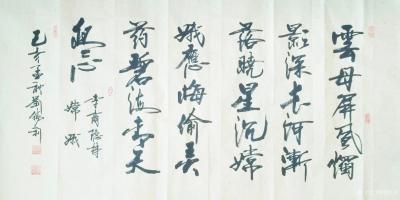 雲母屏風燭
影深長河漸
落曉星沉嫦
娥應悔偷靈
药碧海青天
夜夜心
李商隐诗
嫦娥
己亥孟秋